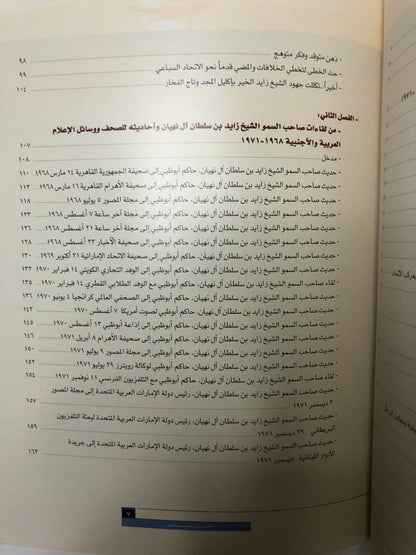 - ذهن متوقد وفكر متوهج ٩٨
- حث الخطى لتخطي الخلافات والمضي قدماً نحو الاتحاد السباعي ٩٩
- أخيراً.. تكللت جهود الشيخ زايد الخير بإكليل المجد وتاج الفخار ١٠٤
- الفصل الثاني:
- من لقاءات صاحب السمو الشيخ زايد بن سلطان آل نهيان وأحاديثه للصحف ووسائل الإعلام
العربية والأجنبية ١٩٦٨-١٩٧١ ١٠٧
- مدخل ١٠٨
- حديث صاحب السمو الشيخ زايد بن سلطان آل نهيان، حاكم أبوظبي إلى صحيفة الجمهورية القاهرية ١٤ مارس ١٩٦٨ ١١٠
- حديث صاحب السمو الشيخ زايد بن سلطان آل نهيان، حاكم أبوظبي إلى صحيفة الأهرام القاهرية ١٦ مارس ١٩٦٨ ١١٢
- حديث صاحب السمو الشيخ زايد بن سلطان آل نهيان، حاكم أبوظبي إلى مجلة المصور ٥ يوليو ١٩٦٨ ١١٨
- حديث صاحب السمو الشيخ زايد بن سلطان آل نهيان، حاكم أبوظبي إلى مجلة آخر ساعة ٧ أغسطس ١٩٦٨
- حديث صاحب السمو الشيخ زايد بن سلطان آل نهيان، حاكم أبوظبي إلى مجلة آخر ساعة ٢١ أغسطس ١٩٦٨ ١٢٦
- حديث صاحب السمو الشيخ زايد بن سلطان آل نهيان، حاكم أبوظبي إلى صحيفة الأخبار ٢٣ أغسطس ١٩٦٨ ١٢٨
- حديث صاحب السمو الشيخ زايد بن سلطان آل نهيان، حاكم أبوظبي إلى صحيفة الاتحاد الإماراتية ٢١ أكتوبر ١٩٦٩
- حديث صاحب السمو الشيخ زايد بن سلطان آل نهيان، حاكم أبوظبي إلى الوفد التجاري الكويتي ١٤ فبراير ١٩٧٠
- لقاء صاحب السمو الشيخ زايد بن سلطان آل نهيان، حاكم أبوظبي مع الوفد الطلابي القطري ١٤ فبراير ١٩٧٠
- حديث صاحب السمو الشيخ زايد بن سلطان آل نهيان، حاكم أبوظبي إلى الصحفي العالمي كرانجيا ٤ يونيو ١٩٧٠ ١٣٦
- حديث صاحب السمو الشيخ زايد بن سلطان آل نهيان، حاكم أبوظبي لصوت أمريكا ٧ أغسطس ١٩٧٠ ١٤٣
- حديث صاحب السمو الشيخ زايد بن سلطان آل نهيان، حاكم أبوظبي إلى إذاعة أبوظبي ١٣ أغسطس ١٩٧٠ ١٤٥
- حديث صاحب السمو الشيخ زايد بن سلطان آل نهيان، حاكم أبوظبي إلى صحيفة الأهرام ٨ أبريل ١٩٧١
- حديث صاحب السمو الشيخ زايد بن سلطان آل نهيان، حاكم أبوظبي إلى مجلة المصور ٩ يوليو ١٩٧١
- حديث صاحب السمو الشيخ زايد بن سلطان آل نهيان، حاكم أبوظبي لوكالة رويترز ٢٩ يوليو ١٩٧١ ١٥٢
- لقاء صاحب السمو الشيخ زايد بن سلطان آل نهيان، حاكم أبوظبي مع التلفزيون الفرنسي ١١ نوفمبر ١٩٧١ ١٥٤
- حديث صاحب السمو الشيخ زايد بن سلطان آل نهيان، رئيس دولة الإمارات العربية المتحدة إلى مجلة المصور
٣ ديسمبر ١٩٧١ ١٥٧
- حديث صاحب السمو الشيخ زايد بن سلطان آل نهيان، رئيس دولة الإمارات العربية المتحدة لبعثة التلفزيون
البريطاني ٢٩ ديسمبر ١٩٧١ ١٥٩
- حديث صاحب السمو الشيخ زايد بن سلطان آل نهيان، رئيس دولة الإمارات العربية المتحدة إلى جريدة
الأنوار اللبنانية: ديسمبر ١٩٧١ ١٦٣
٧